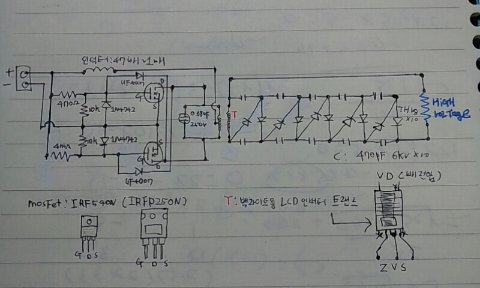 인덕터:47uH~1mH
+
-
UF4007
470Ω
10k
1N4742
10k
1N4742
470Ω
UF4007
G
D
S
G
S
D
T
C: 470pF 6kV x10
x10
High
Voltage
mosfet: IRF540N (IRFP250N)
G D S
G D S
T: 백라이트용 LCD 인버터 트랜스
VD (배전압)
ZVS